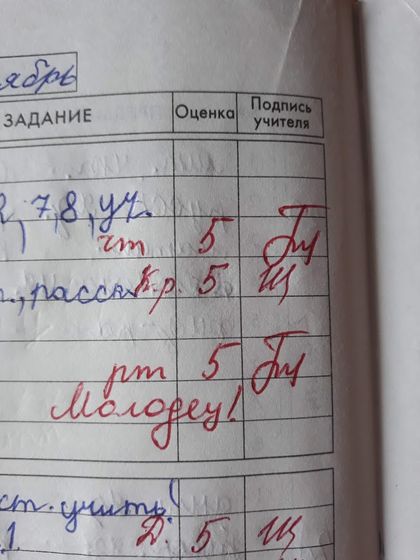 ябрь
ЗАДАНИЕ Оценка Подпись учителя
2, 7, 8, уч.
чт 5
к.р. 5 Щ
рт 5
Молодец!
ст. учить!
.1 Д. 5 Щ